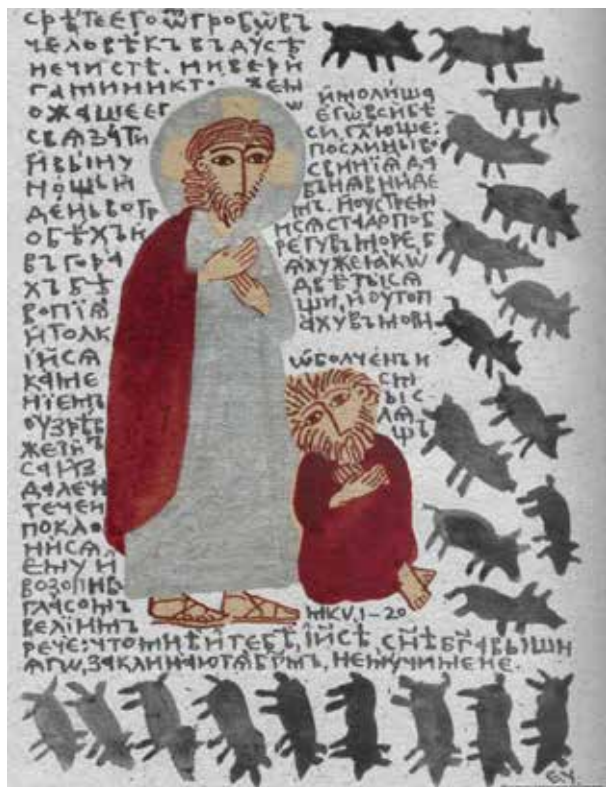 СРѢТЕ ЕГО Ѿ ГРОБѠВЪ
ЧЕЛОВѢКЪ ВЪ ДУСѢ
НЕЧИСТѢ. И ВЕРИ
ГАМИ НИКТО ЖЕ М
ОЖАШЕ ЕГѠ
СВѦЗАТИ
И ВЫНУ
НОЩЬ И
ДЕНЬ ВО ГР
ОБѢХЪ И
ВЪ ГОРА
ХЪ БѢ
ВОПІѦ
И ТОЛК
ІЙСѦ
КАМЕ
НІЕМЪ
ОУЗРѢВ
ЖЕ ІИ
СА ИЗ
ДАЛЕЧ
ТЕЧЕ И
ПОКЛО
НИСѦ
ЕМУ И
ВОЗОПИВ
ГЛАСОМЪ
ВЕЛІИМЪ
РЕЧЕ: ЧТО МНѢ И ТЕБѢ, ІИСЕ, СНЕ БГА ВЫШН
ѦГѠ, ЗАКЛИНАЮ ТѦ БГМЪ, НЕ МУЧИ МЕНЕ.
И МОЛИША
ЕГѠ ВСИ БѢ
СИ, ГЛЮЩЕ:
ПОСЛИ НЫ ВО
СВИНІѦ ДА
ВЪ НѦ ВНИДЕ
МЪ. И ОУСТРЕМ
ИСѦ СТАДО ПО Б
РЕГУ ВЪ МОРЕ, Б
ѦХУ ЖЕ ЯКѠ
ДВѢ ТЫСѦ
ЩИ, И ОУТОП
АХУ ВЪ МОРИ
ѠБОЛЧЕНЪ И
СМ
ЫС
ЛѦ
ЩЪ
МК V, 1-20
Є.Ч.